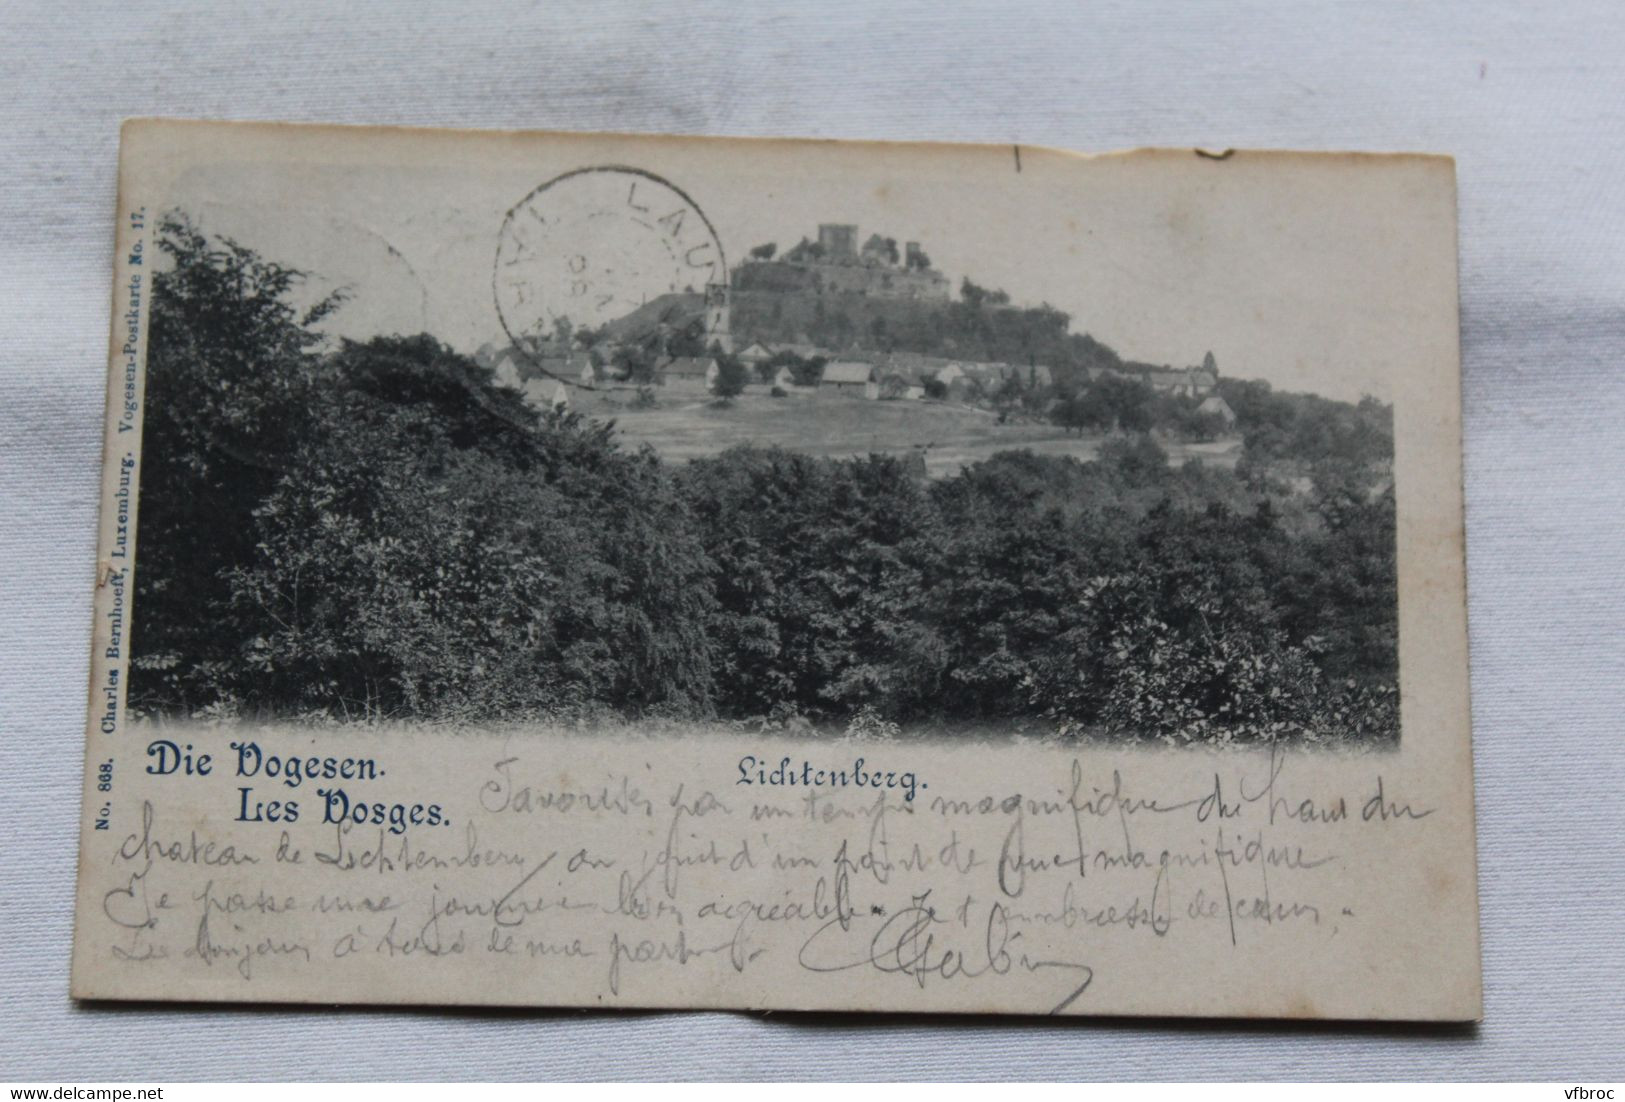 LAU
No. 868. Charles Bernhoeft, Luxemburg. Vogesen-Postkarte No. 17.
Die Vogesen.
Les Vosges.
Lichtenberg.
Favorisés par un temps magnifique du haut du
chateau de Lichtemberg on jouit d'un point de vue magnifique
Je passe une journée bien agréable. Je t'embrasse de cœur.
Le bonjour à tous de ma part.
Gabin
vfbroc